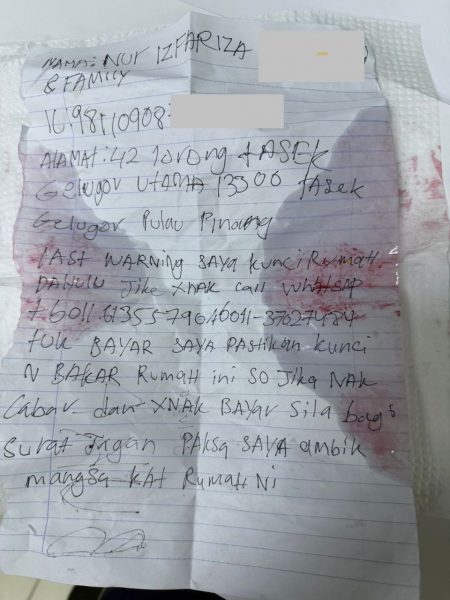 NAMA: NUR IZFARIZA
& FAMILY
ALAMAT: 42 lorong tASEK
Gelugor UTAMA 13300 tAsek
Gelugor Pulau Pinang
LAST WARNING SAYA KUNCI RUMAH
DAHULU Jika XNAK call WhatsAP
tuk BAYAR SAYA PAStikan kunci
N BAKAR RumAH ini SO Jika NAK
Cabar dan XNAK BAYAR Sila bagi
surat Jagan PAKSA SAYA ambik
mangsa KAt RumAH Ni